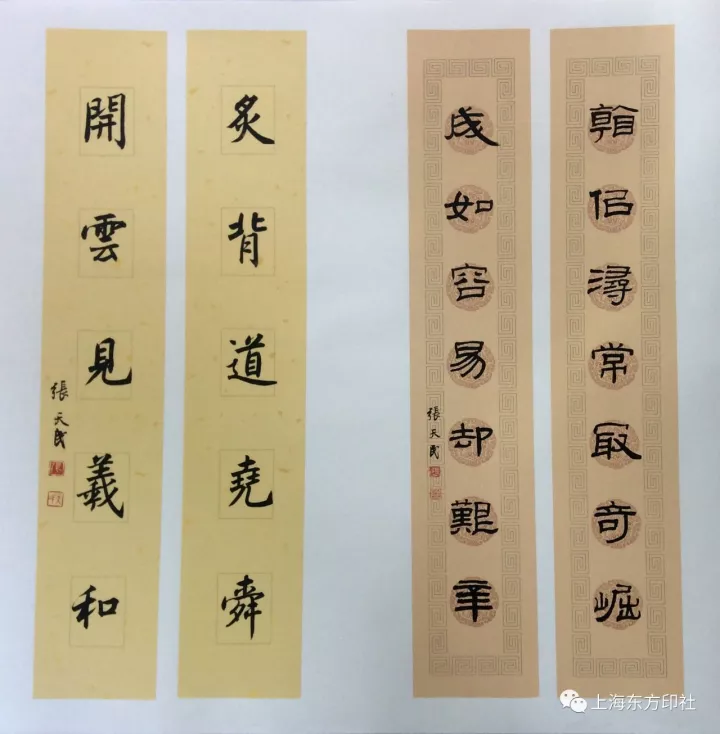 看佀潯常冣奇崛
成如容易却艱辛
張天民
炙背道堯舜
開雲見羲和
張天民
上海东方印社